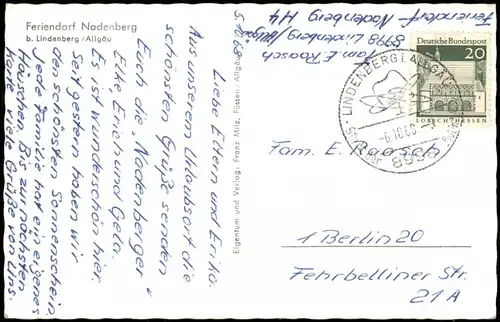 Feriendorf Nadenberg
b. Lindenberg/Allgäu
5.10.68
Liebe Eltern und Erika.
Aus unserem Urlaubsort die
schönsten Grüße senden
Euch die "Nadenberger"
Elke, Erich und Gela.
Es ist wunderschön hier.
Seit gestern haben wir
den schönsten Sonnenschein.
Jede Familie hat ein eigenes
Häuschen. Bis zur nächsten
Karte viele Grüße von uns.
Eigentum und Verlag: Franz Milz, Füssen-Allgäu
Fam. E. Raasch
8998 Lindenberg/Allgäu
Feriendorf Nadenberg H4
LINDENBERG I. ALLGÄU
8998
Deutsche Bundespost
20
LORSCH/HESSEN
Fam. E. Raasch
1 Berlin 20
Fehrbelliner Str.
21A